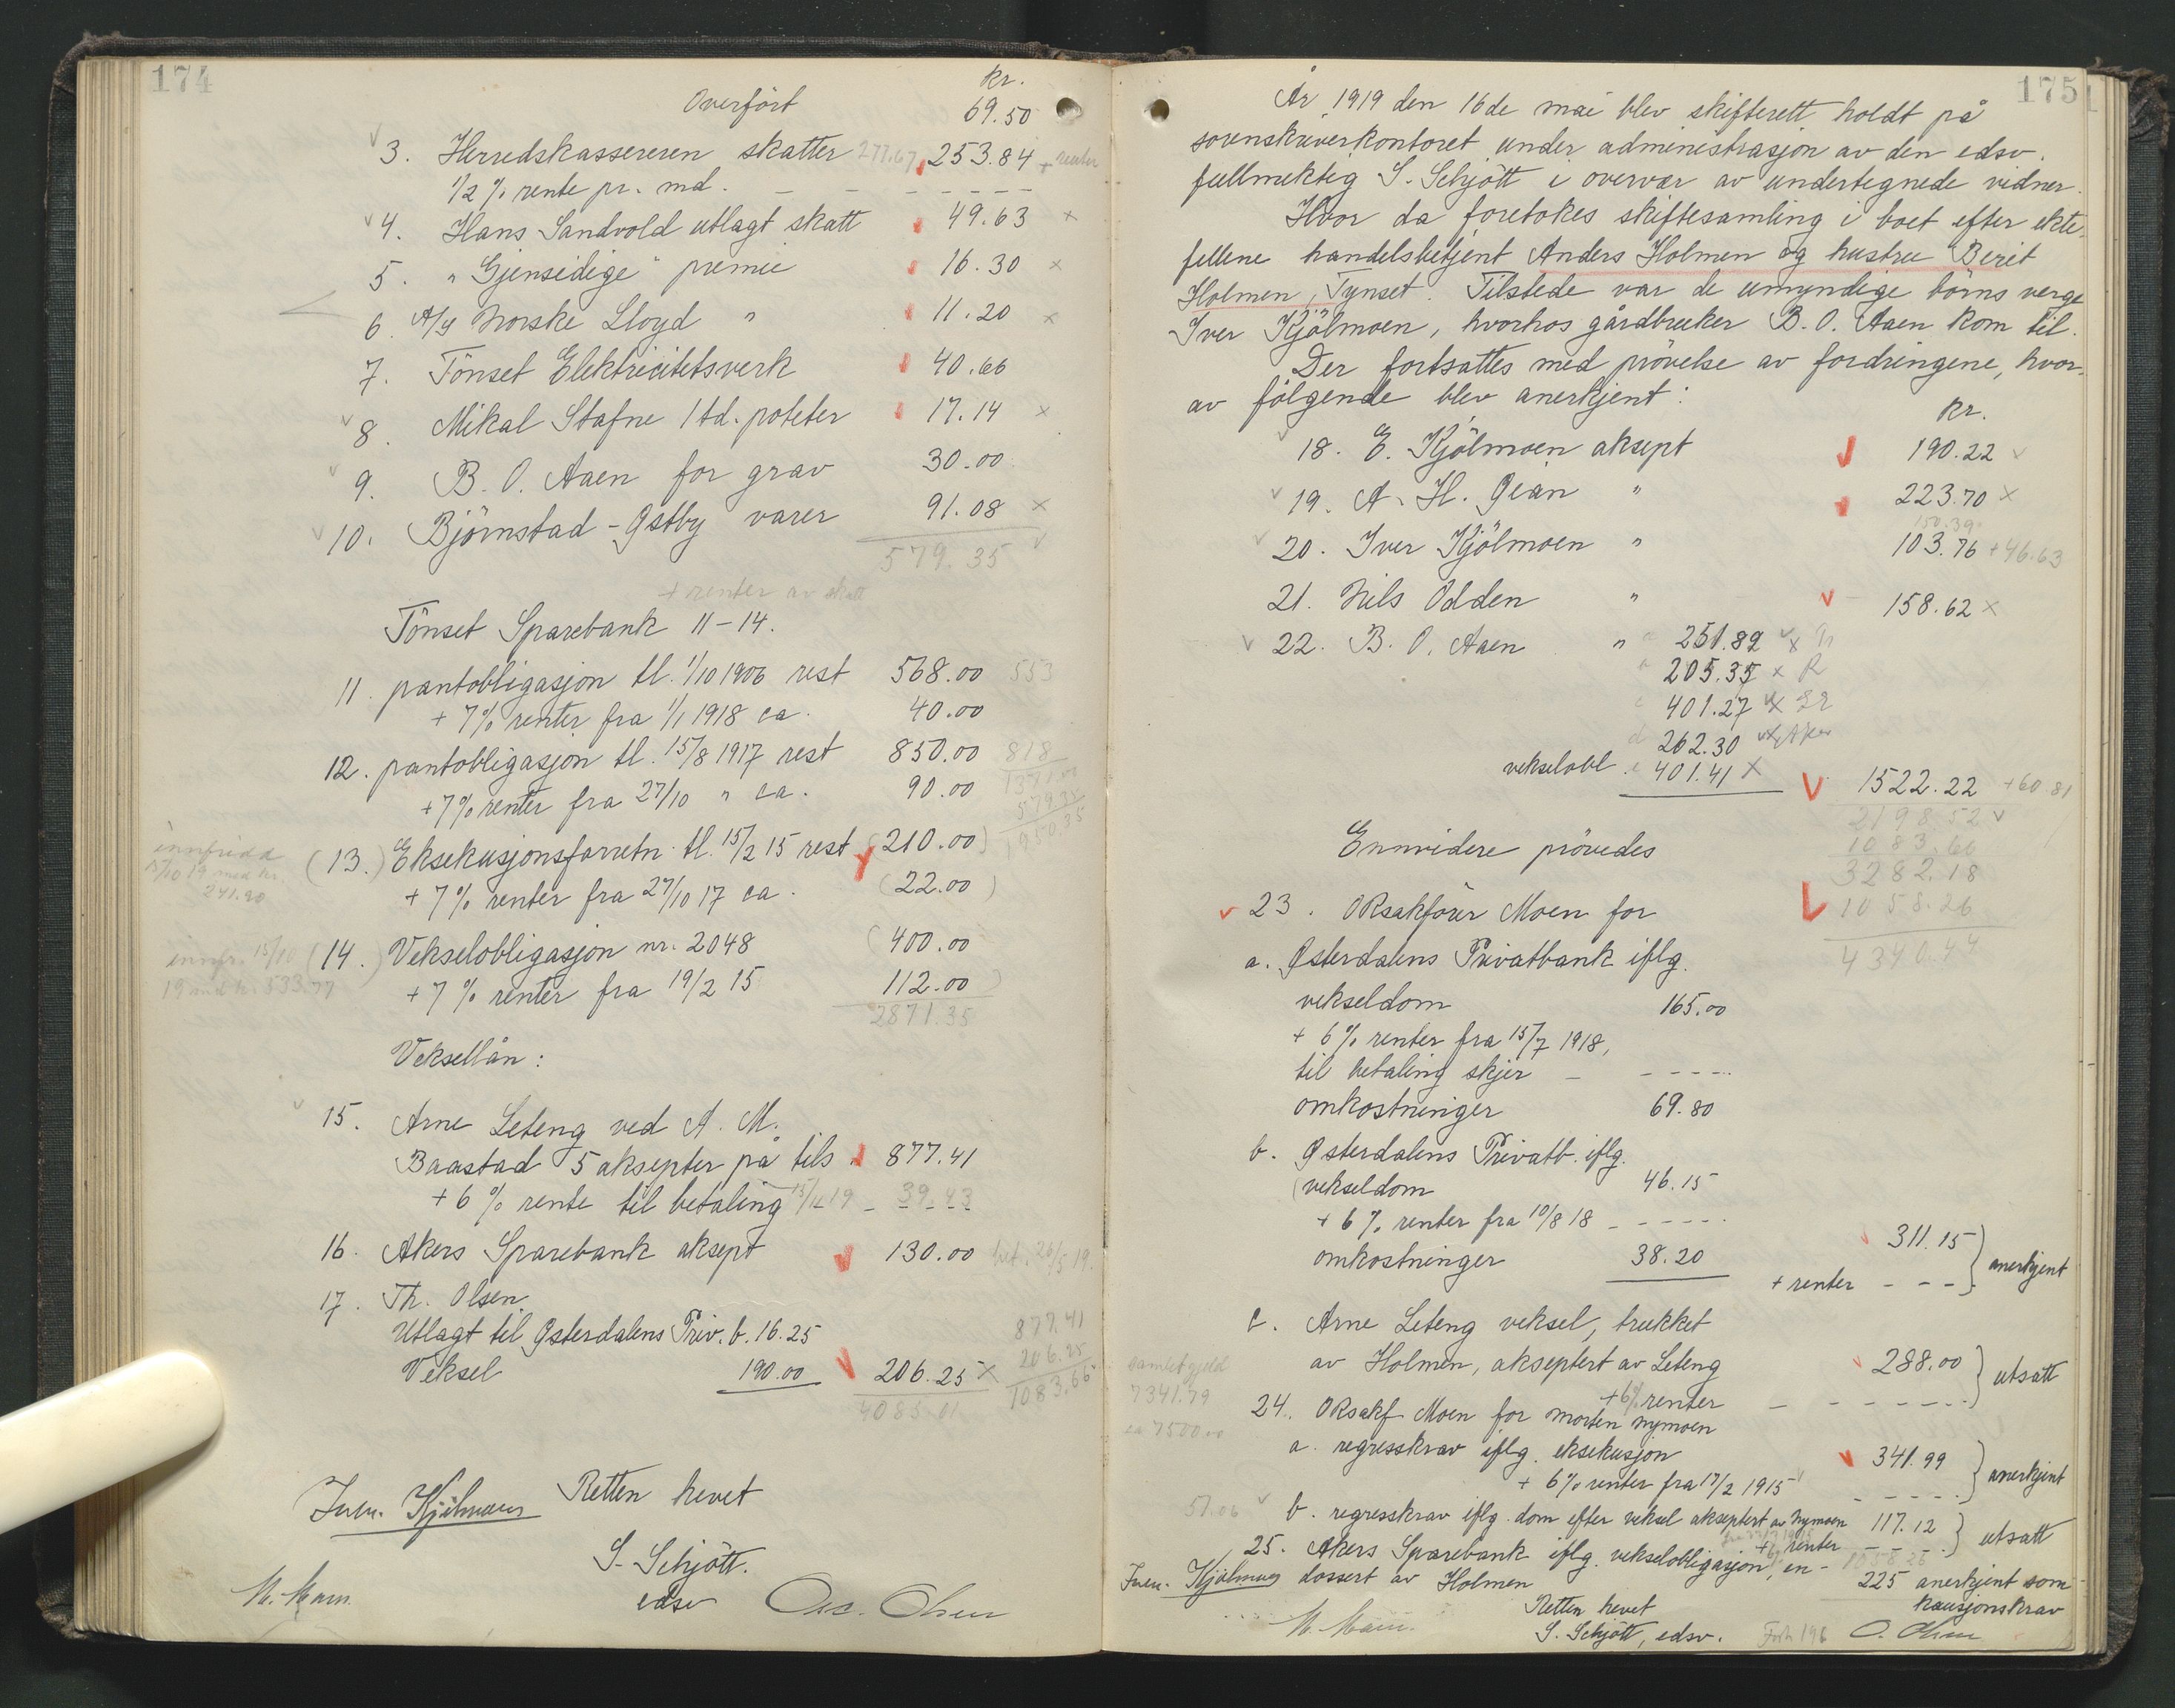 174
kr.
Overfört 69.50
3. Herredskassereren skatter 277.67 253.84 + renter
1/2 % rente pr. md. – – – – – – –
4. Hans Sandvold utlagt skatt 49.63 x
5. "Gjensidige" premie 16.30 x
6. A/S Norske Lloyd " 11.20 x
7. Tönset Elektricitetsverk 40.66
8. Mikal Stafne 1 td. poteter 17.14 x
9. B. O. Aaen for grav 30.00
10. Björnstad - Østby varer 91.08 x
579.35
+ renter av skatt
Tönset Sparebank 11-14.
11. pantobligasjon tl. 1/10 1906 rest 568.00 553
+ 7% renter fra 1/1 1918 ca. 40.00
12. pantobligasjon tl. 15/8 1917 rest 850.00 818
+ 7% renter fra 27/10 " ca. 90.00 1371.00
579.35
1950.35
innfridd
15/10 19 med kr.
241.90
(13.) Eksekusjonsforretn. tl. 15/2 15 rest (210.00)
+ 7% renter fra 27/10 17 ca. (22.00)
innfr. 15/10
19 med kr. 533.77
(14.) Vekselobligasjon nr. 2048 (400.00
+ 7 % renter fra 19/2 15 112.00)
2871.35
Veksellån:
15. Arne Leteng ved A. M.
Baastad 5 aksepter på tils. 877.41
+ 6 % rente til betaling 15/12 19 – 39.43
16. Akers Sparebank aksept 130.00 bet. 26/5 19.
17. Th. Olsen
Utlagt til Østerdalens Priv. b. 16.25
Veksel 190.00 206.25 x
4085.01
877.41
206.25
1083.66
Retten hevet
Iver Kjölmoen
S. Schjött.
edsv
M. Moen. Osc. Olsen
175
År 1919 den 16de mai blev skifterett holdt på
sorenskriverkontoret under administrasjon av den edsv.
fullmektig S. Schjött i overvær av undertegnede vidner.
Hvor da foretokes skiftesamling i boet efter ekte-
fellene handelsbetjent Anders Holmen og hustru Berit
Holmen, Tynset. Tilstede var de umyndige börns verge
Iver Kjölmoen, hvorhos gårdbruker B. O. Aaen kom til.
Der fortsattes med prövelse av fordringene, hvor-
av fölgende blev anerkjent:
kr.
18. E. Kjölmoen aksept 190.22
19. A. H. Øian " 223.70 x
150.39
20. Iver Kjölmoen " 103.76 + 46.63
21. Nils Odden " 158.62 x
22. B. O. Aaen " a 251.89 x
205.35 x R
c 401.27 x
d 262.30 x
vekselobl. e 401.41 x 1522.22 + 60.81
2198.52
1083.66
3282.18
1058.26
4340.44
Ennvidere prövedes
23. ORsakförer Moen for
a. Østerdalens Privatbank iflg.
vekseldom 165.00
+ 6% renter fra 15/7 1918,
til betaling skjer – – – – –
omkostninger 69.80
b. Østerdalens Privatb. iflg.
vekseldom 46.15
+ 6 % renter fra 10/8 18 – – – – –
omkostninger 38.20 311.15 } anerkjent
+ renter – – –
c. Arne Leteng veksel, trukket
av Holmen, akseptert av Leteng 288.00 } utsatt
+ 6% renter – – – – – –
samlet gjeld
7341.79
ca 7500.00
24. ORsakf Moen for Morten Nymoen
a. regresskrav iflg. eksekusjon 341.99 } anerkjent
+ 6% renter fra 17/2 1915 – – – – –
51.06
b. regresskrav iflg. dom efter veksel akseptert av Nymoen 117.12 } utsatt
+ 6% renter – – – –
1058.26
25. Akers Sparebank iflg. vekselobligasjon, en-
dossert av Holmen 225 anerkjent som
kausjonskrav
Iver Kjölmoen
Retten hevet
M. Moen. S. Schjött, edsv. Forts. 196 O. Olsen